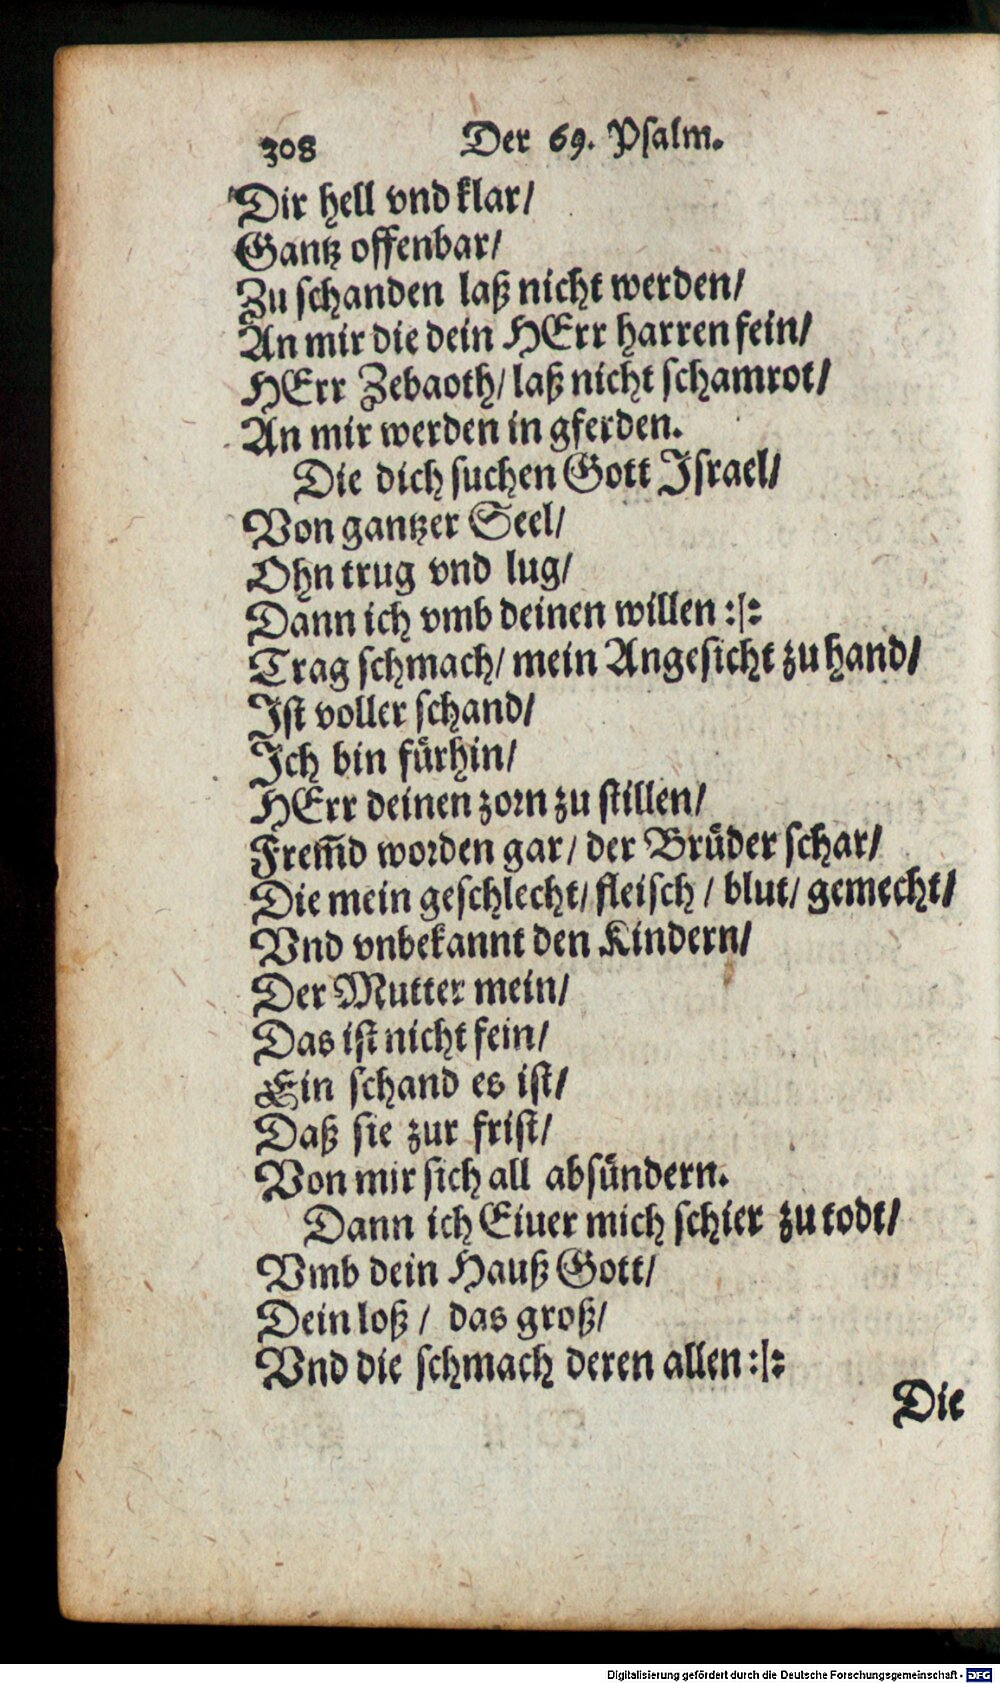 308 Der 69. Psalm.
Dir hell vnd klar/
Gantz offenbar/
Zu schanden laß nicht werden/
An mir die dein HErr harren fein/
HErr Zebaoth/ laß nicht schamrot/
An mir werden in gferden.
Die dich suchen Gott Israel/
Von gantzer Seel/
Ohn trug vnd lug/
Dann ich vmb deinen willen :|:
Trag schmach/ mein Angesicht zu hand/
Ist voller schand/
Ich bin fürhin/
HErr deinen zorn zu stillen/
Frem̃d worden gar/ der Brüder schar/
Die mein geschlecht/ fleisch / blut/ gemecht/
Vnd vnbekannt den Kindern/
Der Mutter mein/
Das ist nicht fein/
Ein schand es ist/
Daß sie zur frist/
Von mir sich all absündern.
Dann ich Eiuer mich schier zu todt/
Vmb dein Hauß Gott/
Dein loß / das groß/
Vnd die schmach deren allen :|:
Die
Digitalisierung gefördert durch die Deutsche Forschungsgemeinschaft - DFG